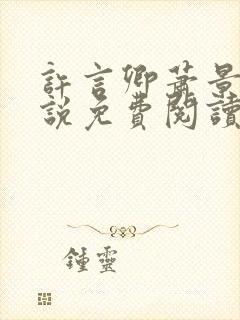 許言卿蕭景
說免費閱讀
鍾靈